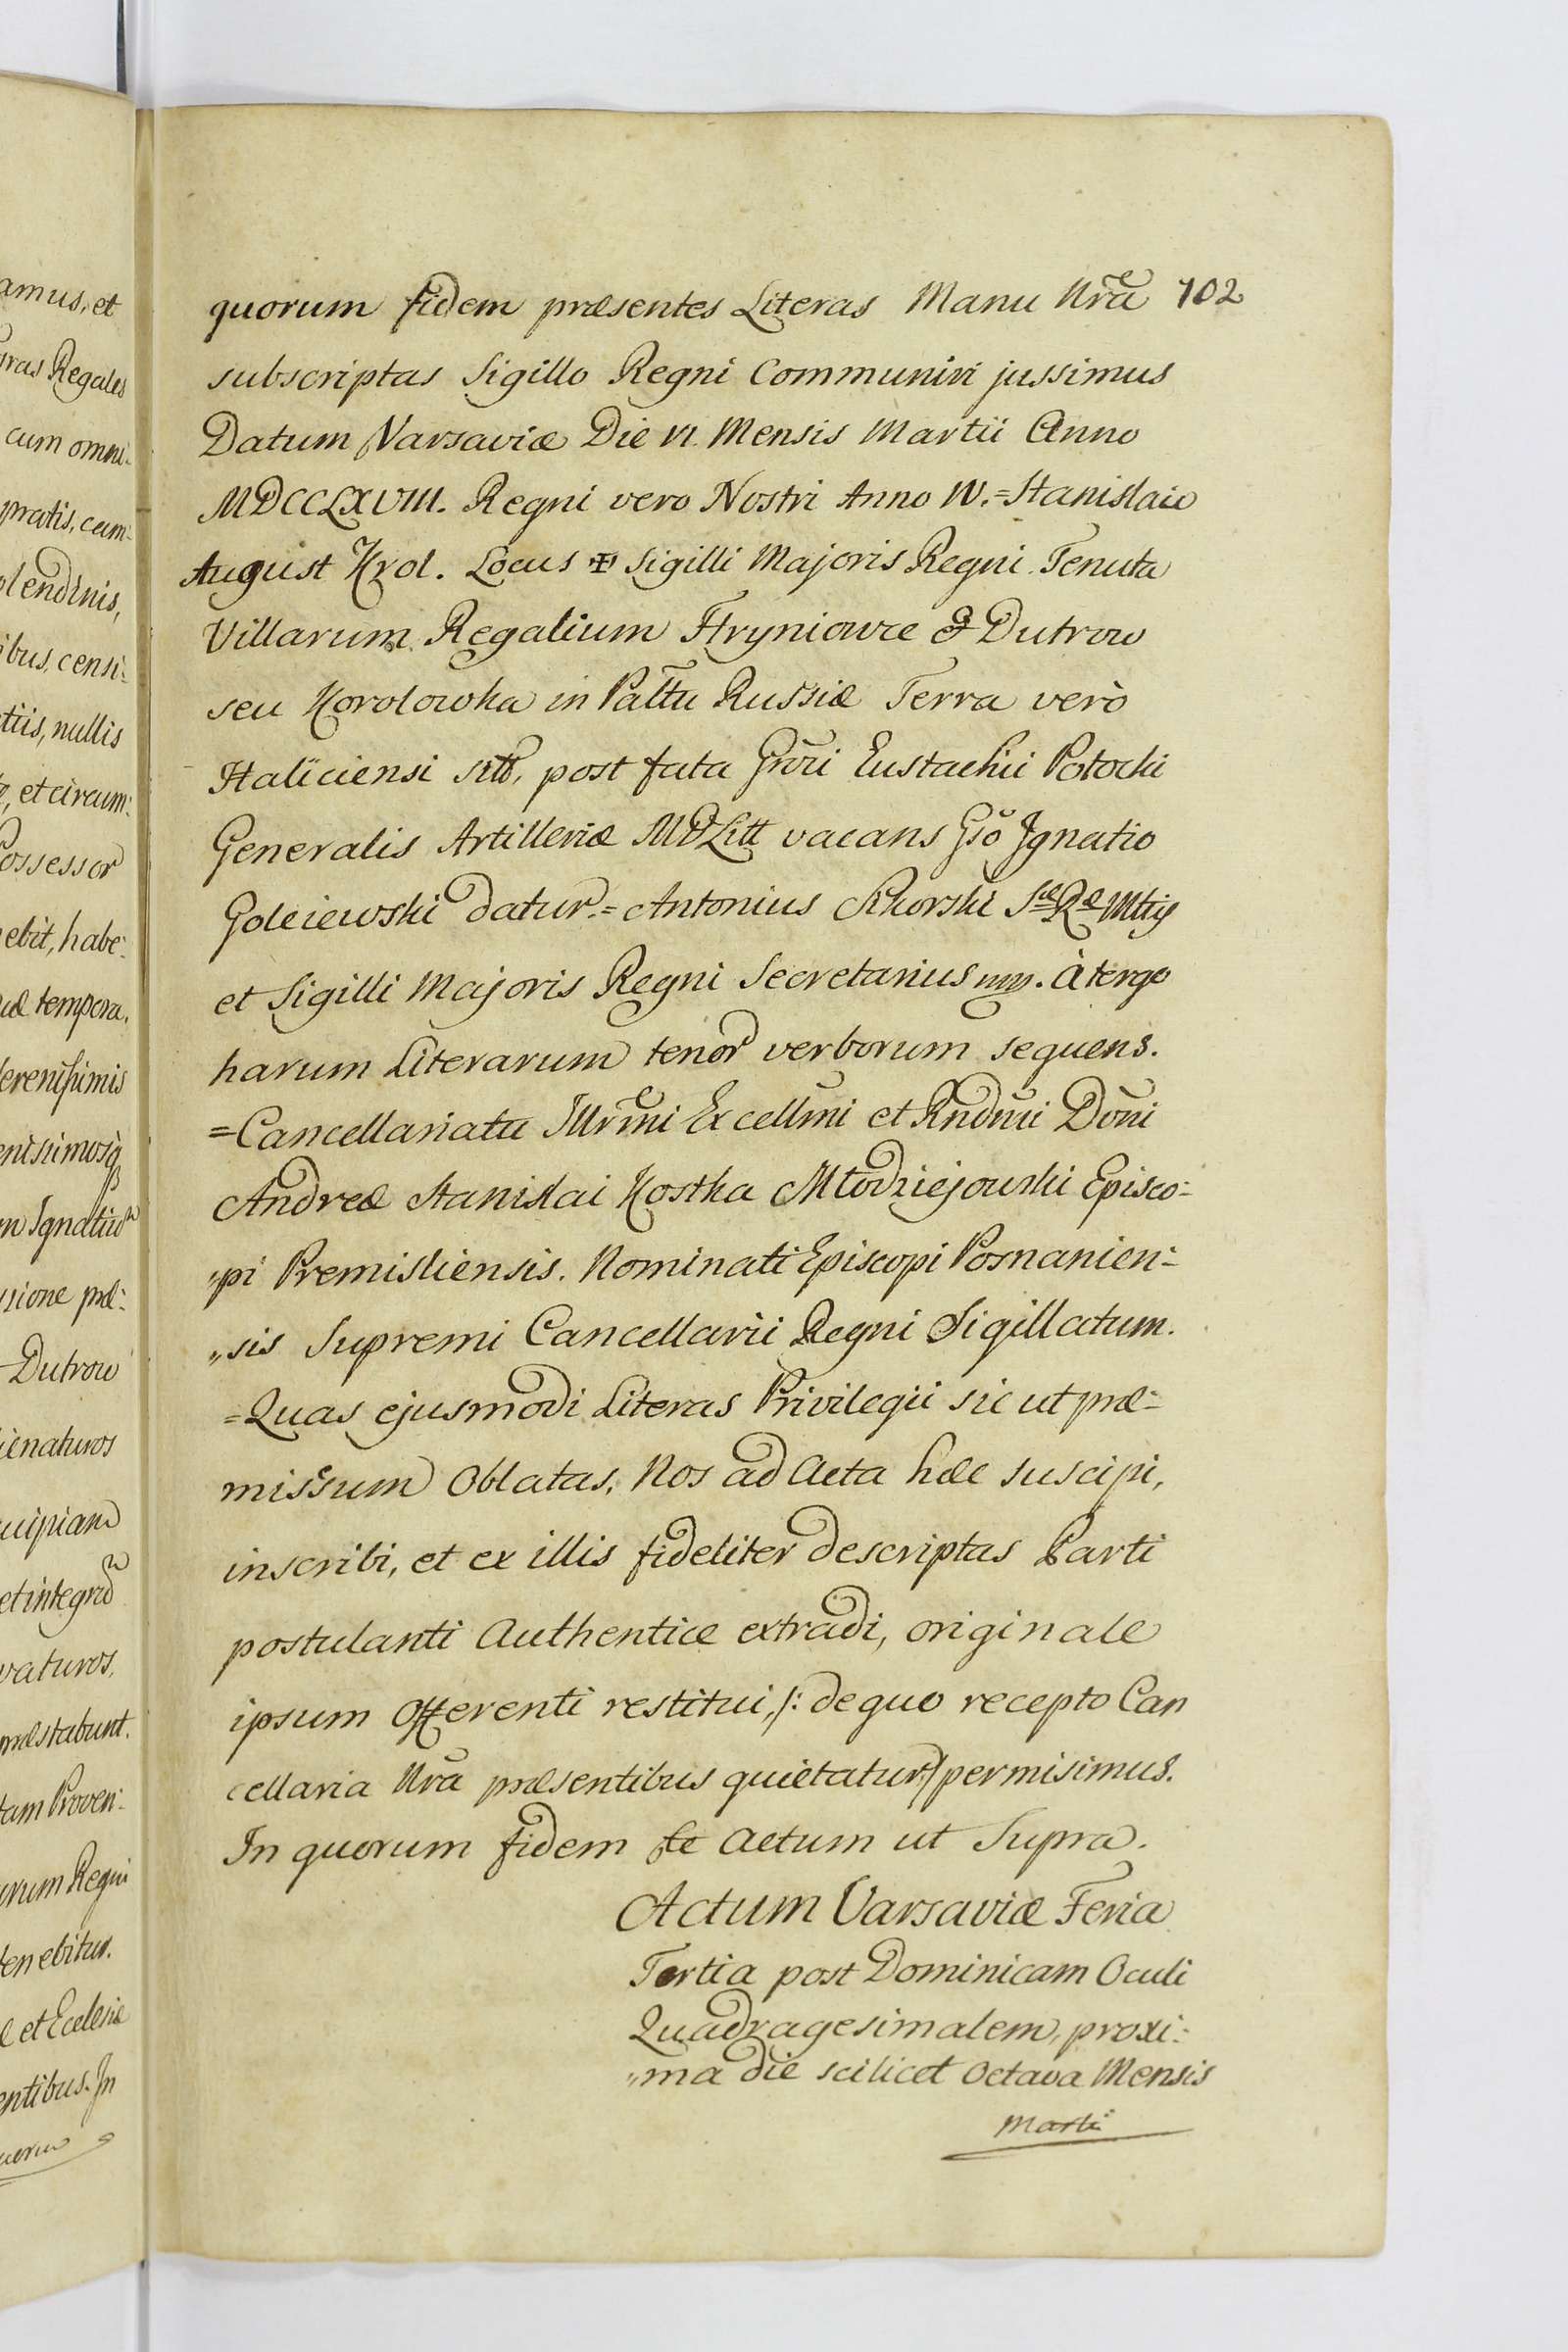 amus, et
ras Regales
cum omni-
pratis, cum-
olendinis,
ibus, censi-
tiis, nullis
et circum:
Possessor
ebit, habe:
tempora.
erenissimis
enissimosq
Ignatiu
sione præ:
Dutrow
ienaturos
cuipiam
et integra
vaturos,
præstabunt.
tam Proven-
urum Regni
tenebitur.
et Ecclesiæ
entibus. In
quorum fidem præsentes Literas Manu Nrã 102
subscriptas Sigillo Regni Communiri jussimus
Datum Varsaviæ Die VI. Mensis Martii Anno
MDCCLXVIII. Regni vero Nostri Anno IV.=Stanislaw
August Krol. Locus ✠ Sigilli Majoris Regni. Tenuta
Villarum Regalium Hryniowce & Dutrow
seu Korolowka in Palttu Russiæ Terra verò
Haliciensi sitt, post fata Grõsi Eustachii Potocki
Generalis Artilleriæ MDLitt vacans Gsõ Ignatio
Goleiewski datur.=Antonius Sikorski Sæ Ræ Mttis
et Sigilli Majoris Regni Secretarius mp. à tergo
harum Literarum tenor verborum sequens.
=Cancellariatu Illrm̃i Excellm̃i et Rndm̃i Dõni
Andreæ Stanislai Kostka Młodziejowski Episco=
„pi Premisliensis. Nominati Episcopi Posnanien=
„sis Supremi Cancellarii Regni Sigillatum.
=Quas ejusmodi Literas Privilegii sic ut præ=
missum Oblatas, Nos ad Acta hæc suscipi,
inscribi, et ex illis fideliter descriptas Parti
postulanti Authentice extradi, originale
ipsum Offerenti restitui, /: de quo recepto Can
cellaria Nrã præsentibus quietatur:/ permisimus.
In quorum fidem &c Actum ut Supra.
Actum Varsaviæ Feria
Tertia post Dominicam Oculi
Quadragesimalem, proxi:
„ma die scilicet Octava Mensis
Marti